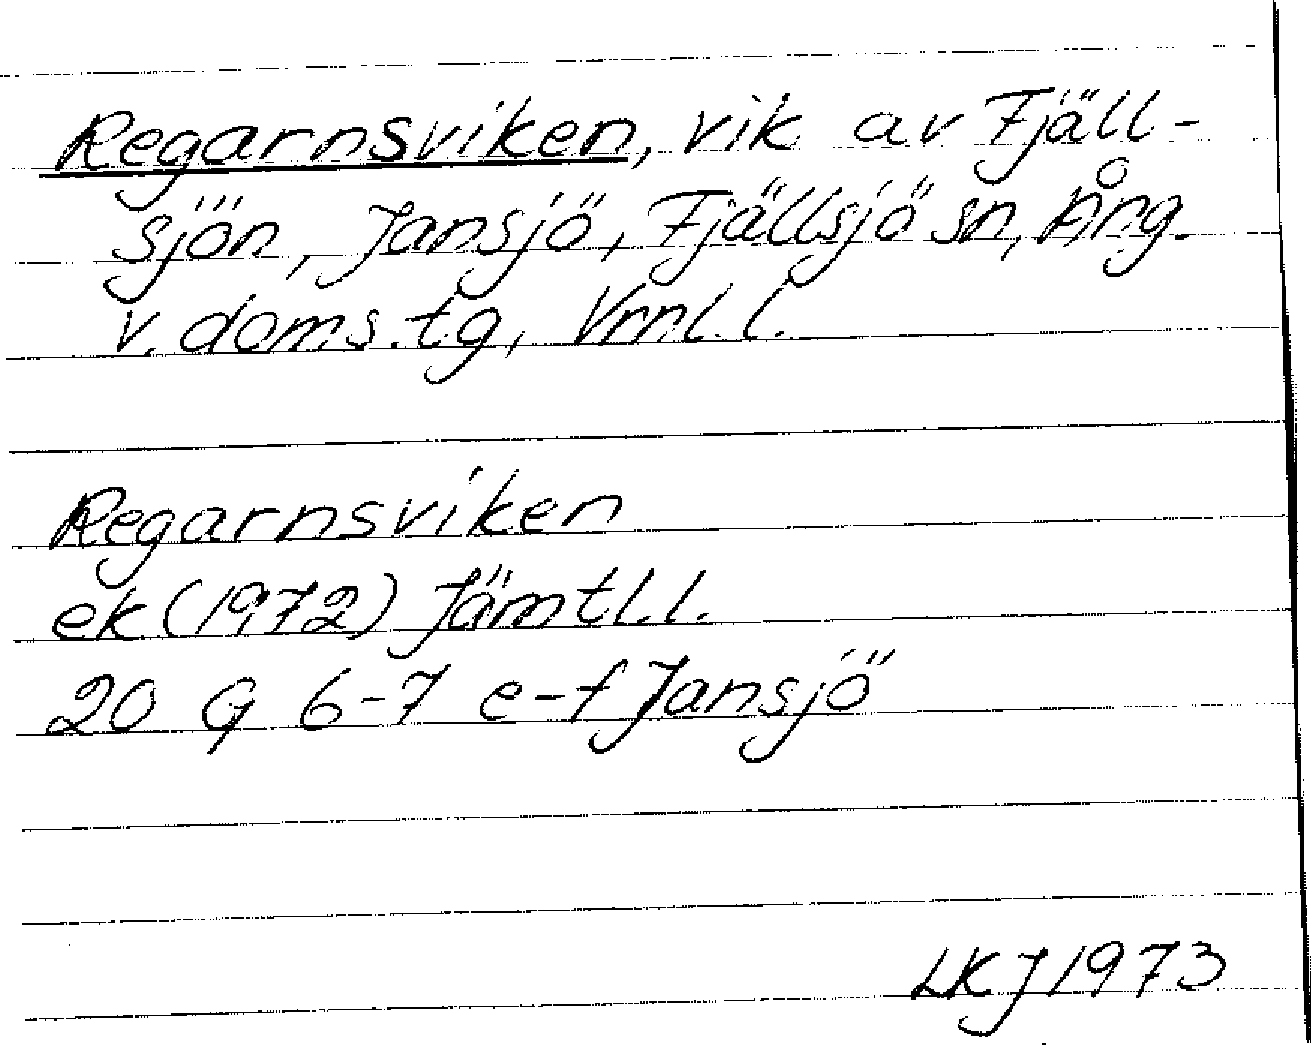 Regarnsviken, vik av Fjäll-
sjön, Jansjö, Fjällsjö sn, Ång.
v. doms. tg, Vrnl. l.
Regarnsviken
ek (1972) Jämtl. l.
20 G 6-7 e-f Jansjö
LKJ 1973